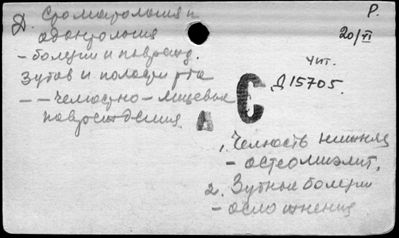 Д. Стоматология и
одонтология
- болезни и поврежд.
Зубов и полости рта
- - Челюстно-лицевые
повреждения
Р.
20/VI
Чит.
Д15705.
С
А
1. Челюсть нижняя
- остеомиэлит.
2. Зубные болезни
- осложнения